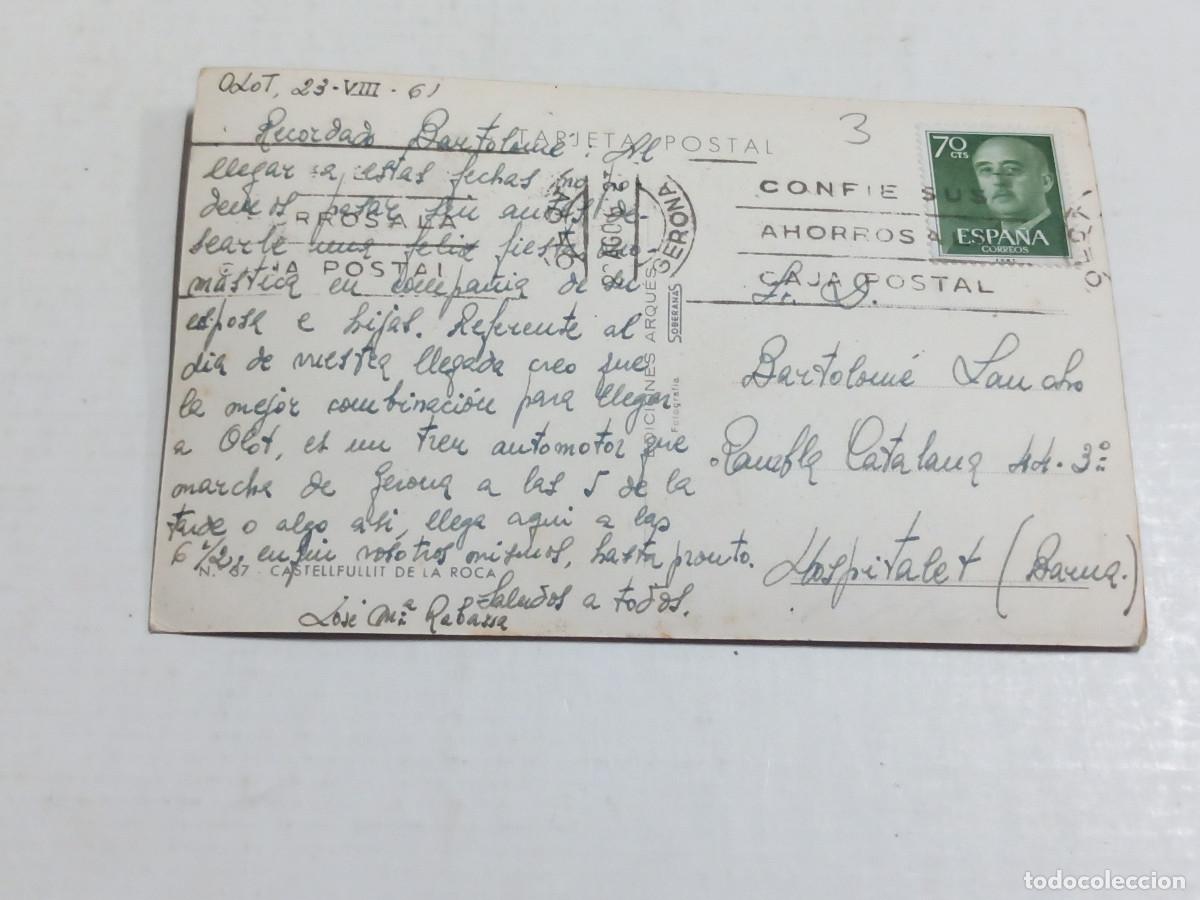 OLOT, 23-VIII-61
TARJETA POSTAL
3
Recordado Bartolomé: Al
llegar a estas fechas no po-
demos pasar sin antes de-
searle una feliz fiesta ono-
mástica en compañia de su
esposa e hijas. Referente al
dia de vuestra llegada creo que
la mejor combinación para llegar
a Olot, es un tren automotor que
marcha de Gerona a las 5 de la
tarde o algo asi, llega aqui a las
6 1/2, en fin vosotros mismos, hasta pronto.
Saludos a todos.
José Mª Rabassa
N.º 67 - CASTELLFULLIT DE LA ROCA
EDICIONES ARQUÉS
Fotografía
SOBERANAS
70 CTS
ESPAÑA
CORREOS
GERONA
CONFIE SUS
AHORROS A
CAJA POSTAL
RROS A LA
CAJA POSTAL
AGO
Sr. D.
Bartolomé Sancho
Rambla Catalana 44-3º
Hospitalet (Barna.)
todocoleccion